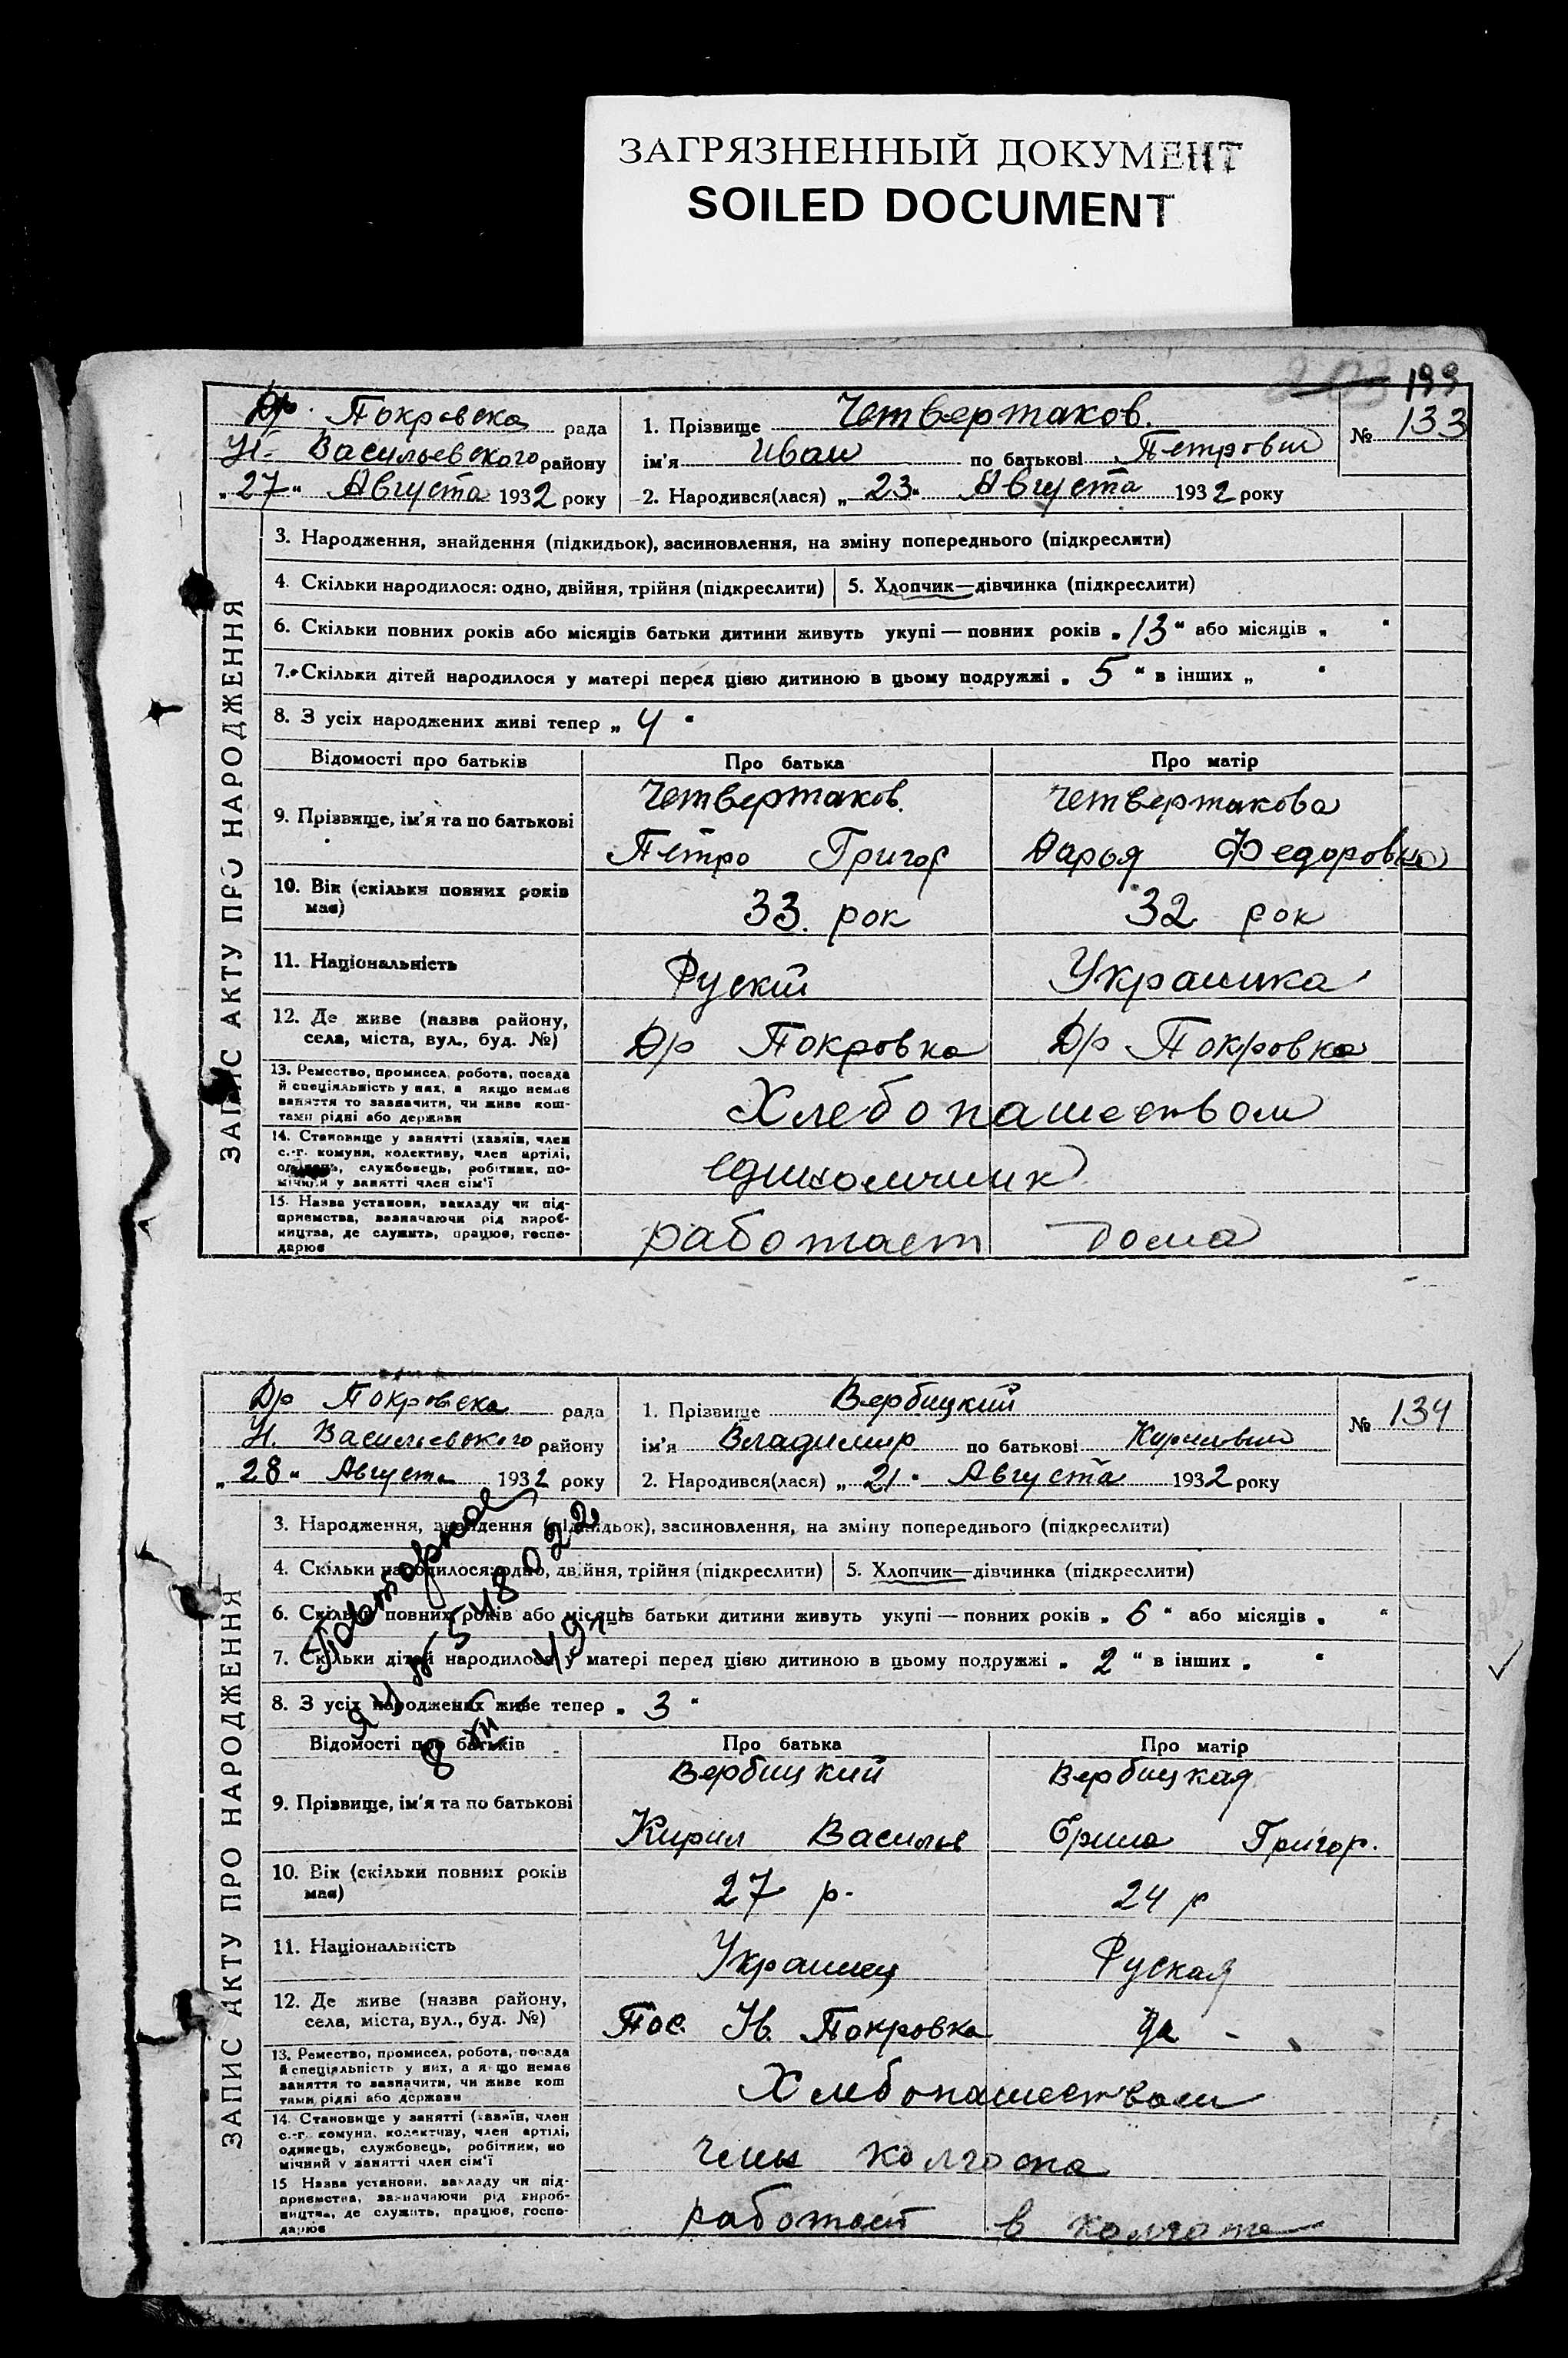 ЗАГРЯЗНЕННЫЙ ДОКУМЕНТ
SOILED DOCUMENT
199
Др. Покровска рада
1. Прізвище Четвертаков.
№ 133
Н- Васильевского району
ім'я Иван по батькові Петрович
„27" Августа 1932 року
2. Народився(лася) „23" Августа 1932 року
ЗАПИС АКТУ ПРО НАРОДЖЕННЯ
3. Народження, знайдення (підкидьок), засиновлення, на зміну попереднього (підкреслити)
4. Скільки народилося: одно, двійня, трійня (підкреслити) 5. Хлопчик—дівчинка (підкреслити)
6. Скільки повних років або місяців батьки дитини живуть укупі — повних років „13" або місяців „ "
7. Скільки дітей народилося у матері перед цією дитиною в цьому подружжі „5" в інших „ "
8. З усіх народжених живі тепер „4"
Відомості про батьків Про батька Про матір
9. Прізвище, ім'я та по батькові
Четвертаков. Четвертакова
Петро Григор Дарья Федоровна
10. Вік (скільки повних років має)
33. рок 32 рок
11. Національність
Руский Украинка
12. Де живе (назва району,
села, міста, вул., буд. №)
Др Покровка Др Покровка
13. Ремество, промисел, робота, посада
й спеціяльність у них, а якщо немає
заняття то зазначити, чи живе кош-
тами рідні або держави
Хлебопашеством
14. Становище у занятті (хазяїн, член
с.-г. комуни, колективу, член артілі,
одинець, службовець, робітник, по-
мічний у занятті член сім'ї
единоличник
15. Назва установи, закладу чи під-
приємства, зазначаючи рід вироб-
ництва, де служить, працює, госпо-
дарює
работает дома
Др Покровска рада
1. Прізвище Вербицкий
№ 134
Н. Васильевского району
ім'я Владимир по батькові Кирилович
„28" Августа 1932 року
2. Народився(лася) „21" Августа 1932 року
ЗАПИС АКТУ ПРО НАРОДЖЕННЯ
3. Народження, знайдення (підкидьок), засиновлення, на зміну попереднього (підкреслити)
4. Скільки народилося: одно, двійня, трійня (підкреслити) 5. Хлопчик—дівчинка (підкреслити)
6. Скільки повних років або місяців батьки дитини живуть укупі — повних років „6" або місяців „ "
7. Скільки дітей народилося у матері перед цією дитиною в цьому подружжі „2" в інших „ "
8. З усіх народжених живе тепер „3"
Повторное
№ 548022
Відомості про батьків Про батька Про матір
9. Прізвище, ім'я та по батькові
Вербицкий Вербицкая
Кирил Василье Григор.
10. Вік (скільки повних років має)
27 р. 24 р
11. Національність
Украинец Руская
12. Де живе (назва району,
села, міста, вул., буд. №)
Пос. Н. Покровка
13. Ремество, промисел, робота, посада
й спеціяльність у них, а якщо немає
заняття то зазначити, чи живе кош
тами рідні або держави
Хлебопашеством
14. Становище у занятті (хазяїн, член
с.-г. комуни, колективу, член артілі,
одинець, службовець, робітник, по
мічний у занятті член сім'ї
член колгоспа
15 Назва установи, закладу чи під-
приємства, зазначаючи рід вироб-
ництва, де служить, працює, госпо-
дарює
работает в